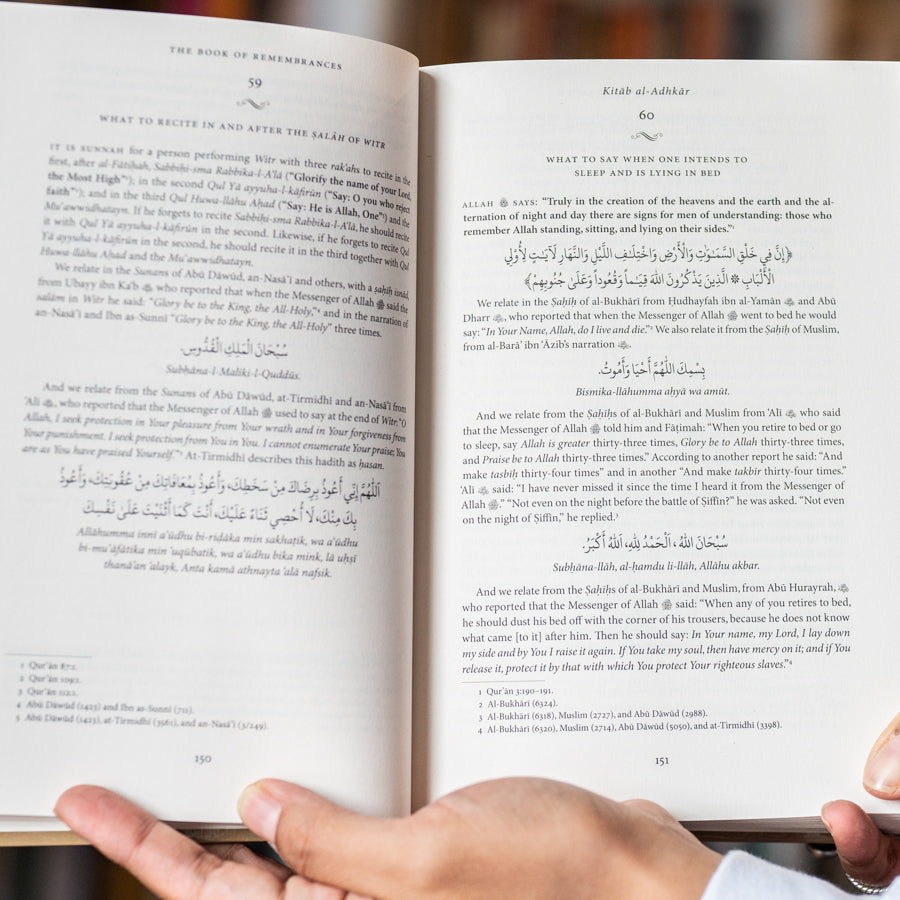 THE BOOK OF REMEMBRANCES
59
WHAT TO RECITE IN AND AFTER THE ṢALĀH OF WITR
IT IS SUNNAH for a person performing Witr with three rak'ahs to recite in the
first, after al-Fātiḥah, Sabbiḥi-sma Rabbika-l-A'lā ("Glorify the name of your Lord,
the Most High"¹); in the second Qul Yā ayyuha-l-kāfirūn ("Say: O you who reject
faith"²); and in the third Qul Huwa-llāhu Aḥad ("Say: He is Allah, One"³) and the
Mu'awwidhatayn. If he forgets to recite Sabbiḥi-sma Rabbika-l-A'lā, he should recite
it with Qul Yā ayyuha-l-kāfirūn in the second. Likewise, if he forgets to recite Qul
Yā ayyuha-l-kāfirūn in the second, he should recite it in the third together with Qul
Huwa-llāhu Aḥad and the Mu'awwidhatayn.
We relate in the Sunans of Abū Dāwūd, an-Nasā'ī and others, with a ṣaḥīḥ isnād,
from Ubayy ibn Ka'b ﷺ, who reported that when the Messenger of Allah ﷺ said the
salām in Witr he said: "Glory be to the King, the All-Holy,"⁴ and in the narration of
an-Nasā'ī and Ibn as-Sunnī "Glory be to the King, the All-Holy" three times.
سُبْحَانَ الْمَلِكِ الْقُدُّوسِ.
Subḥāna-l-Maliki-l-Quddūs.
And we relate from the Sunans of Abū Dāwūd, at-Tirmidhī and an-Nasā'ī from
'Alī, who reported that the Messenger of Allah ﷺ used to say at the end of Witr: "O
Allah, I seek protection in Your pleasure from Your wrath and in Your forgiveness from
Your punishment. I seek protection from You in You. I cannot enumerate Your praise; You
are as You have praised Yourself."⁵ At-Tirmidhī describes this hadith as ḥasan.
اَللّٰهُمَّ إِنِّي أَعُوذُ بِرِضَاكَ مِنْ سَخَطِكَ، وَأَعُوذُ بِمُعَافَاتِكَ مِنْ عُقُوبَتِكَ، وَأَعُوذُ
بِكَ مِنْكَ، لَا أُحْصِي ثَنَاءً عَلَيْكَ، أَنْتَ كَمَا أَثْنَيْتَ عَلَىٰ نَفْسِكَ
Allāhumma innī a'ūdhu bi-riḍāka min sakhaṭik, wa a'ūdhu
bi-mu'āfātika min 'uqūbatik, wa a'ūdhu bika mink, lā uḥṣī
thanā'an 'alayk, Anta kamā athnayta 'alā nafsik.
1 Qur'ān 87:1.
2 Qur'ān 109:1.
3 Qur'ān 112:1.
4 Abū Dāwūd (1423) and Ibn as-Sunnī (711).
5 Abū Dāwūd (1423), at-Tirmidhī (3561), and an-Nasā'ī (3/249).
150
Kitāb al-Adhkār
60
WHAT TO SAY WHEN ONE INTENDS TO
SLEEP AND IS LYING IN BED
ALLAH SAYS: "Truly in the creation of the heavens and the earth and the al-
ternation of night and day there are signs for men of understanding: those who
remember Allah standing, sitting, and lying on their sides."¹
﴿إِنَّ فِي خَلْقِ السَّمَـٰوَٰتِ وَالْأَرْضِ وَاخْتِلَـٰفِ اللَّيْلِ وَالنَّهَارِ لَآيَـٰتٍ لِأُولِي
الْأَلْبَابِ ❋ الَّذِينَ يَذْكُرُونَ اللهَ قِيَـٰماً وَقُعُوداً وَعَلَىٰ جُنُوبِهِمْ﴾
We relate in the Ṣaḥīḥ of al-Bukhārī from Ḥudhayfah ibn al-Yamān and Abū
Dharr, who reported that when the Messenger of Allah ﷺ went to bed he would
say: "In Your Name, Allah, do I live and die."² We also relate it from the Ṣaḥīḥ of Muslim,
from al-Barā' ibn 'Āzib's narration.
بِسْمِكَ اللّٰهُمَّ أَحْيَا وَأَمُوتُ.
Bismika-llāhumma aḥyā wa amūt.
And we relate from the Ṣaḥīḥs of al-Bukhārī and Muslim from 'Alī who said
that the Messenger of Allah ﷺ told him and Fāṭimah: "When you retire to bed or go
to sleep, say Allah is greater thirty-three times, Glory be to Allah thirty-three times,
and Praise be to Allah thirty-three times." According to another report he said: "And
make tasbīḥ thirty-four times" and in another "And make takbīr thirty-four times."
'Alī said: "I have never missed it since the time I heard it from the Messenger of
Allah ﷺ." "Not even on the night before the battle of Ṣiffīn?" he was asked. "Not even
on the night of Ṣiffīn," he replied.³
سُبْحَانَ اللهُ، اَلْحَمْدُ لِلّٰهِ، اَللهُ أَكْبَرُ.
Subḥāna-llāh, al-ḥamdu li-llāh, Allāhu akbar.
And we relate from the Ṣaḥīḥs of al-Bukhārī and Muslim, from Abū Hurayrah,
who reported that the Messenger of Allah ﷺ said: "When any of you retires to bed,
he should dust his bed off with the corner of his trousers, because he does not know
what came [to it] after him. Then he should say: In Your name, my Lord, I lay down
my side and by You I raise it again. If You take my soul, then have mercy on it; and if You
release it, protect it by that with which You protect Your righteous slaves."⁴
1 Qur'ān 3:190–191.
2 Al-Bukhārī (6324).
3 Al-Bukhārī (6318), Muslim (2727), and Abū Dāwūd (2988).
4 Al-Bukhārī (6320), Muslim (2714), Abū Dāwūd (5050), and at-Tirmidhī (3398).
151